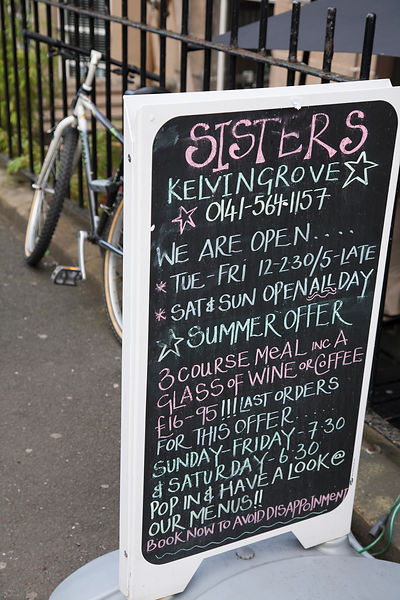 SISTERS
KELVINGROVE
0141-564-1157
WE ARE OPEN.....
* TUE-FRI 12-2.30/5-LATE
* SAT & SUN OPEN ALL DAY
SUMMER OFFER
3 COURSE MEAL INC A
GLASS OF WINE OR COFFEE
£16-95!!! LAST ORDERS
FOR THIS OFFER.....
SUNDAY-FRIDAY-7:30
& SATURDAY-6:30
POP IN & HAVE A LOOK @
OUR MENUS!!
BOOK NOW TO AVOID DISAPPOINTMENT